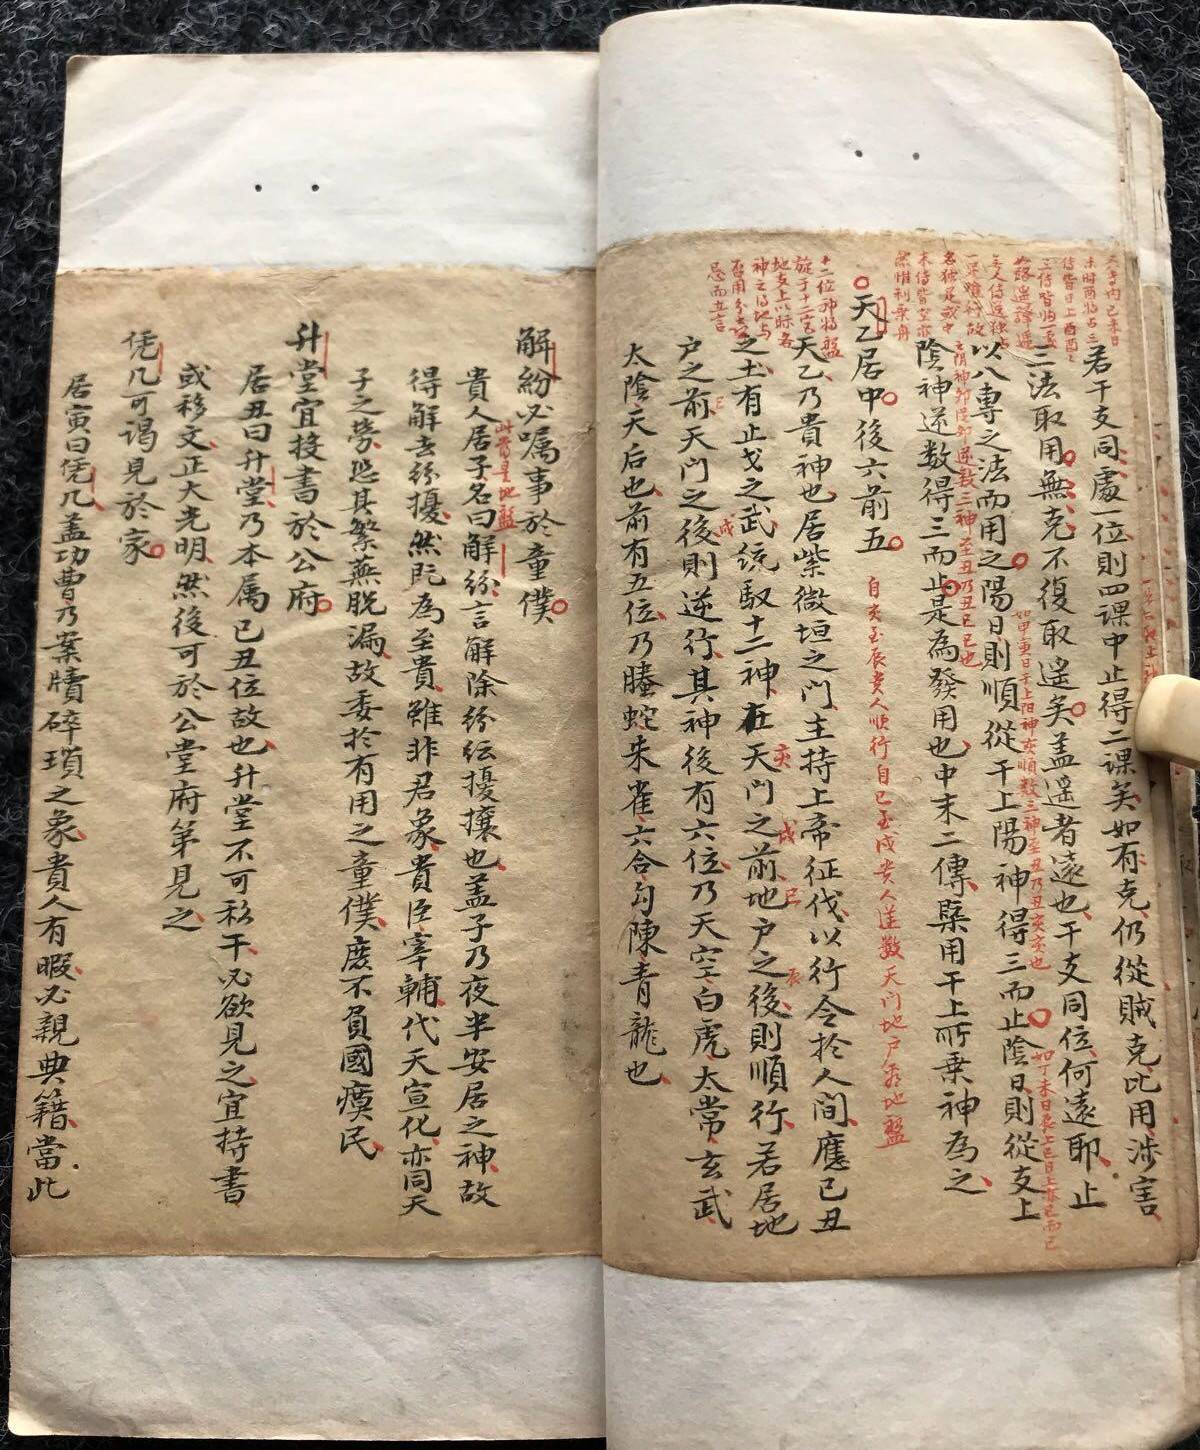 若干支同處一位則四課中止得二課矣如有克仍從賊克比用涉害
三法取用無克不復取遥矣盖遥者遠也干支同位何遠耶止
以八專之法而用之陽日則順從干上陽神得三而止陰日則從支上
陰神逆数得三而止是為發用也中末二傳槩用干上所乗神為之
如丁未日
如甲寅日干上陽神亥順数三神至丑乃丑亥亥也
天乙居中後六前五
自亥至辰貴人順行自巳至戌貴人逆数天门地户希地盤
天乙乃貴神也居紫微垣之门主持上帝征伐以行令於人間應己丑
之土有止戈之武統馭十二神在天门之前地户之後則順行若居地
户之前天门之後則逆行其神後有六位乃天空白虎太常玄武
太陰天后也前有五位乃螣蛇朱雀六合勾陳青龍也
亥
戌
巳
辰
巳
戌
十二位神將盤
旋于十二宫
解紛必嘱事於童僕
貴人居子名曰解紛言解除紛纭擾攘也盖子乃夜半安居之神故
此當是地盤
得解去紛擾然既為至貴雖非君象貴臣宰輔代天宣化亦同天
子之勞恐其繁蕪脱漏故委於有用之童僕庶不負國瘼民
升堂宜投書於公府
居丑曰升堂乃本属己丑位故也升堂不可移干必欲見之宜持書
或移文正大光明然後可於公堂府第見之
凭几可谒見於家
居寅曰凭几盖功曹乃案牘碎瑣之象貴人有暇必親典籍當此